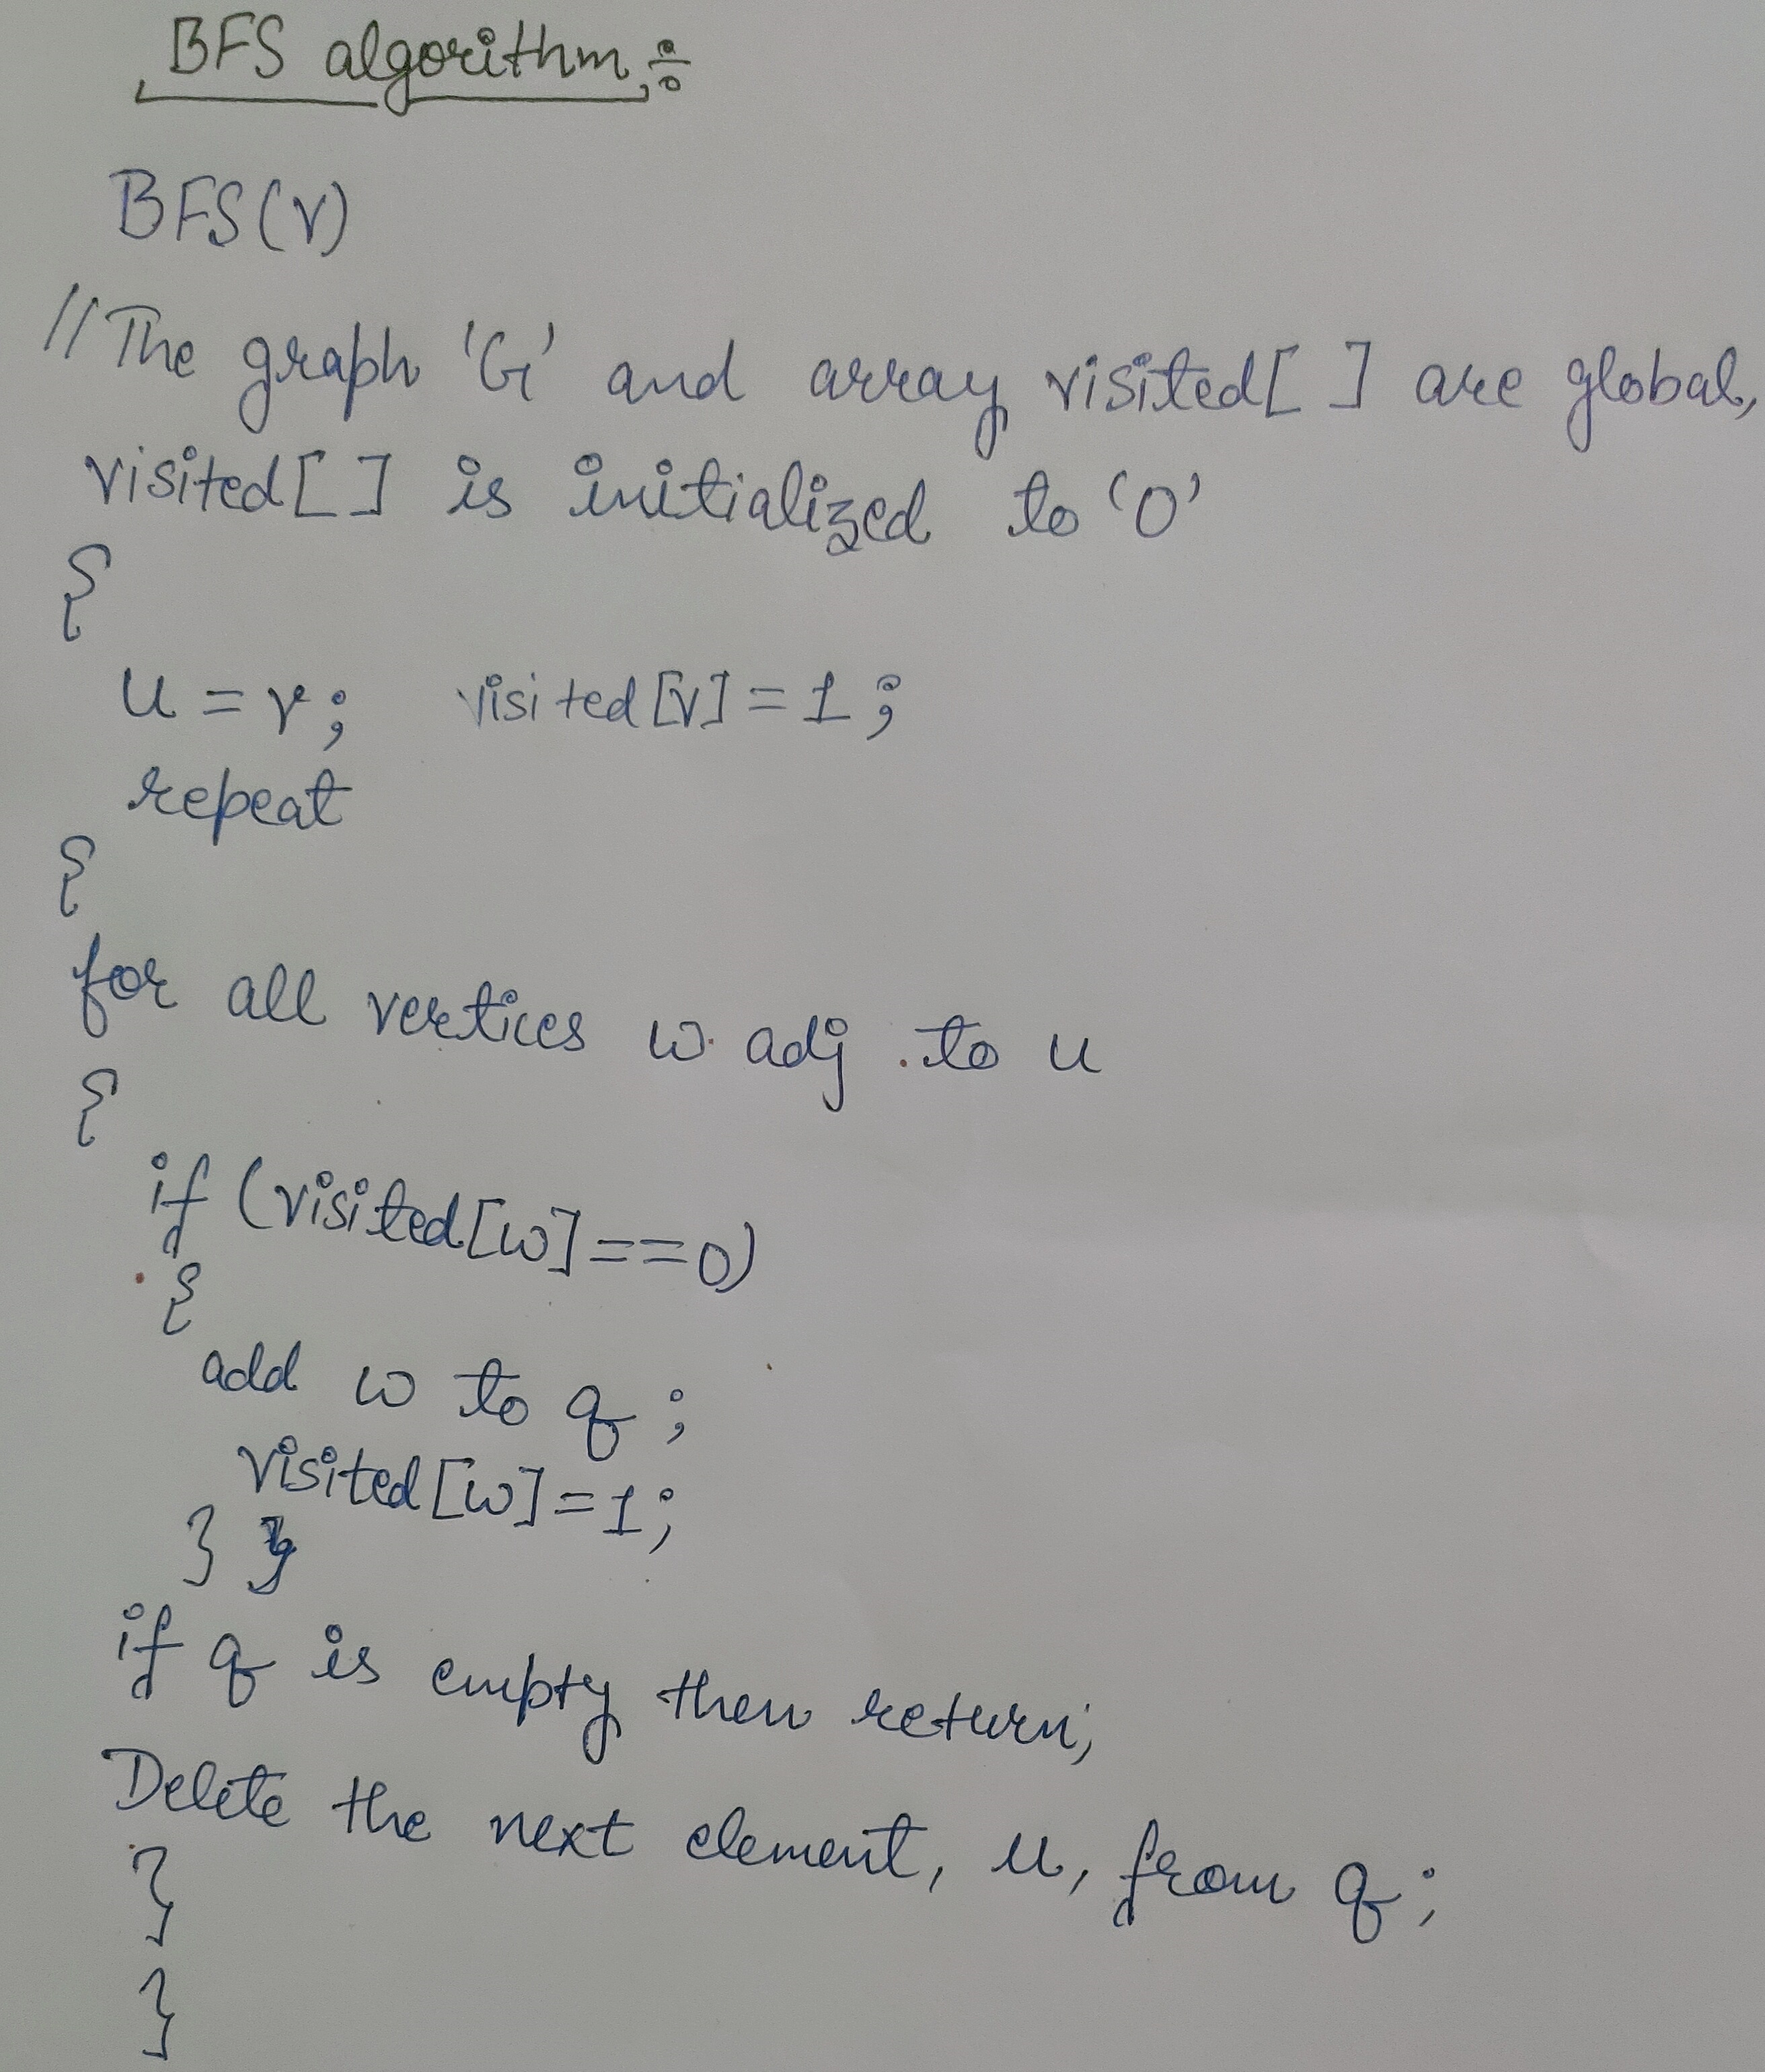 BFS algorithm ÷
BFS(V)
// The graph 'G' and array visited[ ] are global,
visited[ ] is initialized to '0'
{
u = v; visited[v] = 1;
repeat
{
for all vertices w adj. to u
{
if (visited[w]==0)
{
add w to q;
visited[w]=1;
} }
if q is empty then return;
Delete the next element, u, from q;
}
}